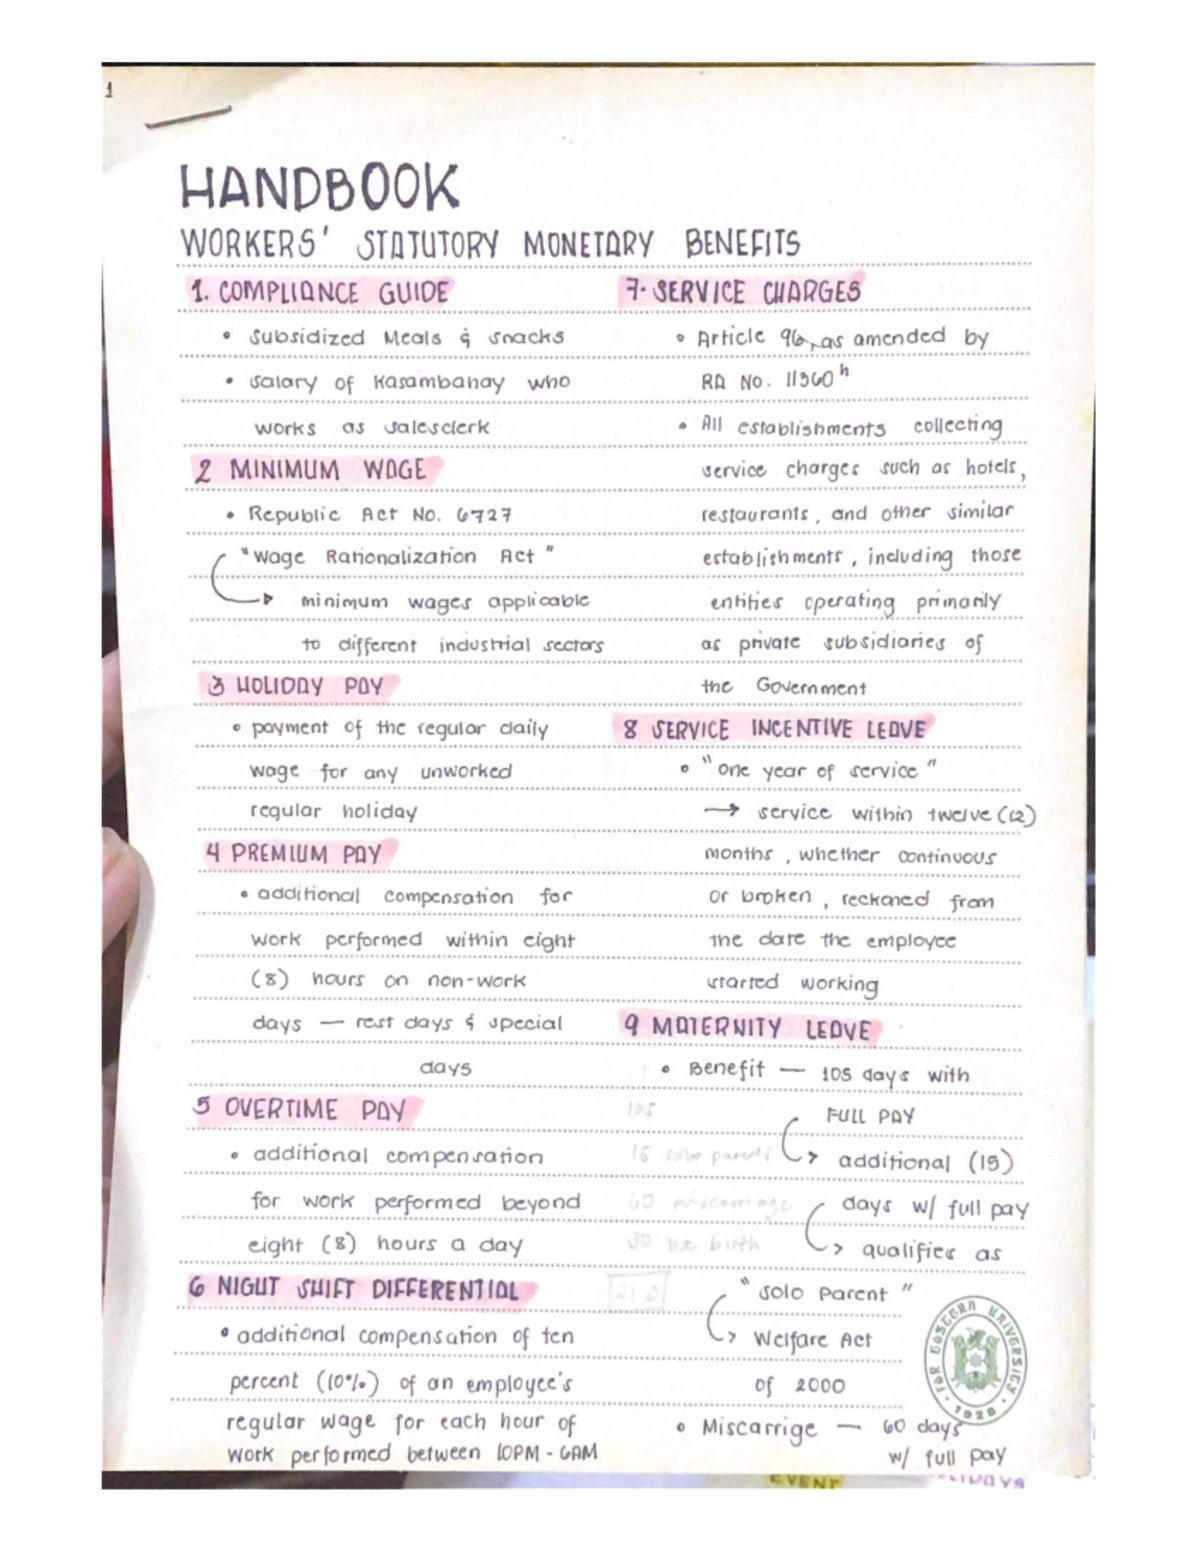 1
HANDBOOK
WORKERS' STATUTORY MONETARY BENEFITS
1. COMPLIANCE GUIDE
• Subsidized Meals & snacks
• salary of Kasambahay who
works as salesclerk
2 MINIMUM WAGE
• Republic Act No. 6727
"Wage Rationalization Act"
minimum wages applicable
to different industrial sectors
3 HOLIDAY PAY
• payment of the regular daily
wage for any unworked
regular holiday
4 PREMIUM PAY
• additional compensation for
work performed within eight
(8) hours on non-work
days — rest days & special
days
5 OVERTIME PAY
• additional compensation
for work performed beyond
eight (8) hours a day
6 NIGHT SHIFT DIFFERENTIAL
• additional compensation of ten
percent (10%) of an employee's
regular wage for each hour of
work performed between 10PM - 6AM
7. SERVICE CHARGES
• Article 96, as amended by
RA No. 11360 h
• All establishments collecting
service charges such as hotels,
restaurants, and other similar
establishments, including those
entities operating primarily
as private subsidiaries of
the Government
8 SERVICE INCENTIVE LEAVE
• "One year of service"
→ service within twelve (12)
months, whether continuous
or broken, reckoned from
the date the employee
started working
9 MATERNITY LEAVE
• Benefit — 105 days with
FULL PAY
additional (15)
days w/ full pay
qualifies as
"Solo Parent"
Welfare Act
of 2000
• Miscarrige — 60 days
w/ full pay
105
15 solo parent
60 miscarriage
30 birth
210
FAR EASTERN UNIVERSITY
1928
EVENT